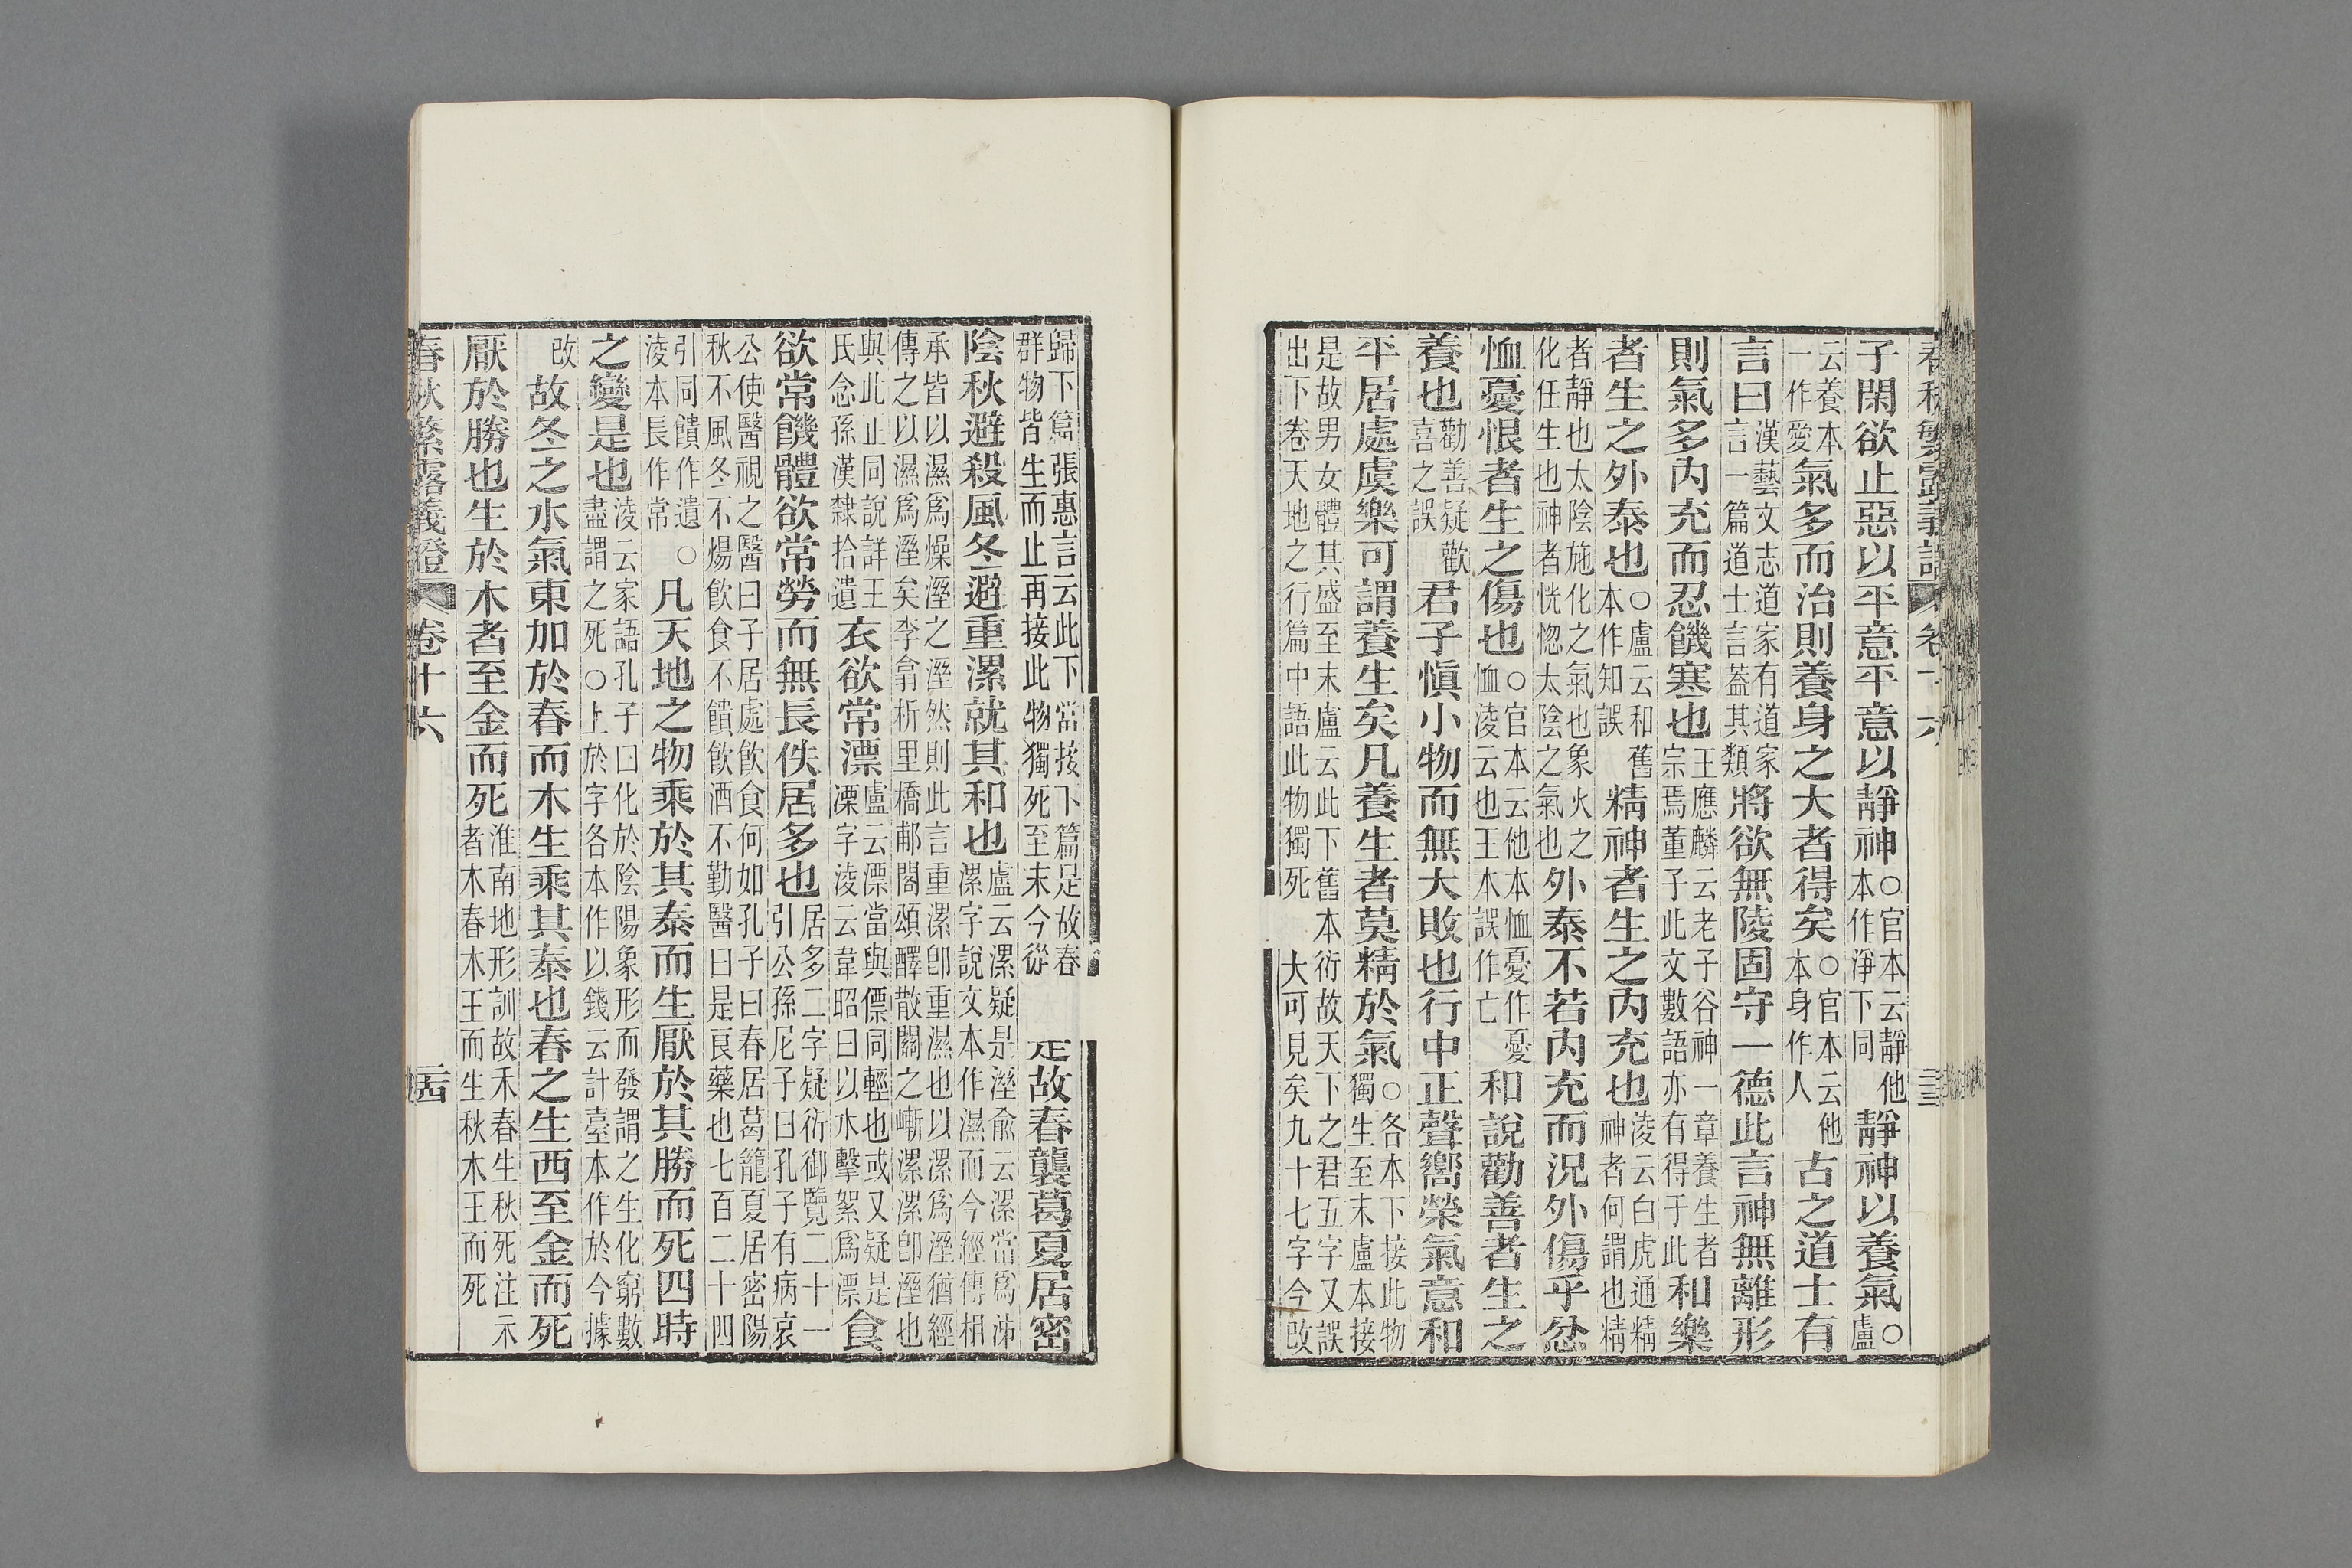 春秋繁露義證 卷十六 二三
子閑欲止惡以平意平意以靜神○官本云靜他本作淨下同靜神以養氣○盧
云養本一作愛氣多而治則養身之大者得矣○官本云他本身作人古之道士有
言曰漢藝文志道家有道家言一篇道士言蓋其類將欲無陵固守一德此言神無離形
則氣多內充而忍饑寒也王應麟云老子谷神一章養生者宗焉董子此文數語亦有得于此和樂
者生之外泰也○盧云和舊本作知誤精神者生之內充也淩云白虎通精神者何謂也精
者靜也太陰施化之氣也象火之化任生也神者恍惚太陰之氣也外泰不若內充而況外傷乎忿
恤憂恨者生之傷也○官本云他本恤憂作憂恤淩云也王本誤作亡和說勸善者生之
養也勸善疑歡喜之誤君子愼小物而無大敗也行中正聲嚮榮氣意和
平居處虞樂可謂養生矣凡養生者莫精於氣○各本下接此物獨生至末盧本接
是故男女體其盛至末盧云此下舊本衍故天下之君五字又誤出下卷天地之行篇中語此物獨死 大可見矣九十七字今改
歸下篇張惠言云此下當接下篇是故春群物皆生而止再接此物獨死至末今從是故春襲葛夏居密
陰秋避殺風冬避重漯就其和也盧云漯疑是溼兪云漯當爲沛漯字說文本作濕而今經傳相
承皆以濕爲燥溼之溼然則此言重漯卽重濕也以漯爲溼猶經傳之以濕爲溼矣李翕析里橋郙閣頌醳散關之嶃漯漯卽溼也
與此正同說詳王氏念孫漢隸拾遺衣欲常漂盧云漂當與僄同輕也或又疑是凓字淩云韋昭曰以水擊絮爲漂食
欲常饑體欲常勞而無長佚居多也居多二字疑衍御覽二十一引公孫尼子曰孔子有病哀
公使醫視之醫曰子居處飮食何如孔子曰春居葛籠夏居密陽秋不風冬不煬飮食不饋飮酒不勤醫曰是良藥也七百二十四
引同饋作遺淩本長作常○凡天地之物乘於其泰而生厭於其勝而死四時
之變是也淩云家語孔子曰化於陰陽象形而發謂之生化窮數盡謂之死○上於字各本作以錢云計臺本作於今據
改故冬之水氣東加於春而木生乘其泰也春之生西至金而死
厭於勝也生於木者至金而死淮南地形訓故禾春生秋死注禾者木春木王而生秋木王而死
春秋繁露義證 卷十六 二四